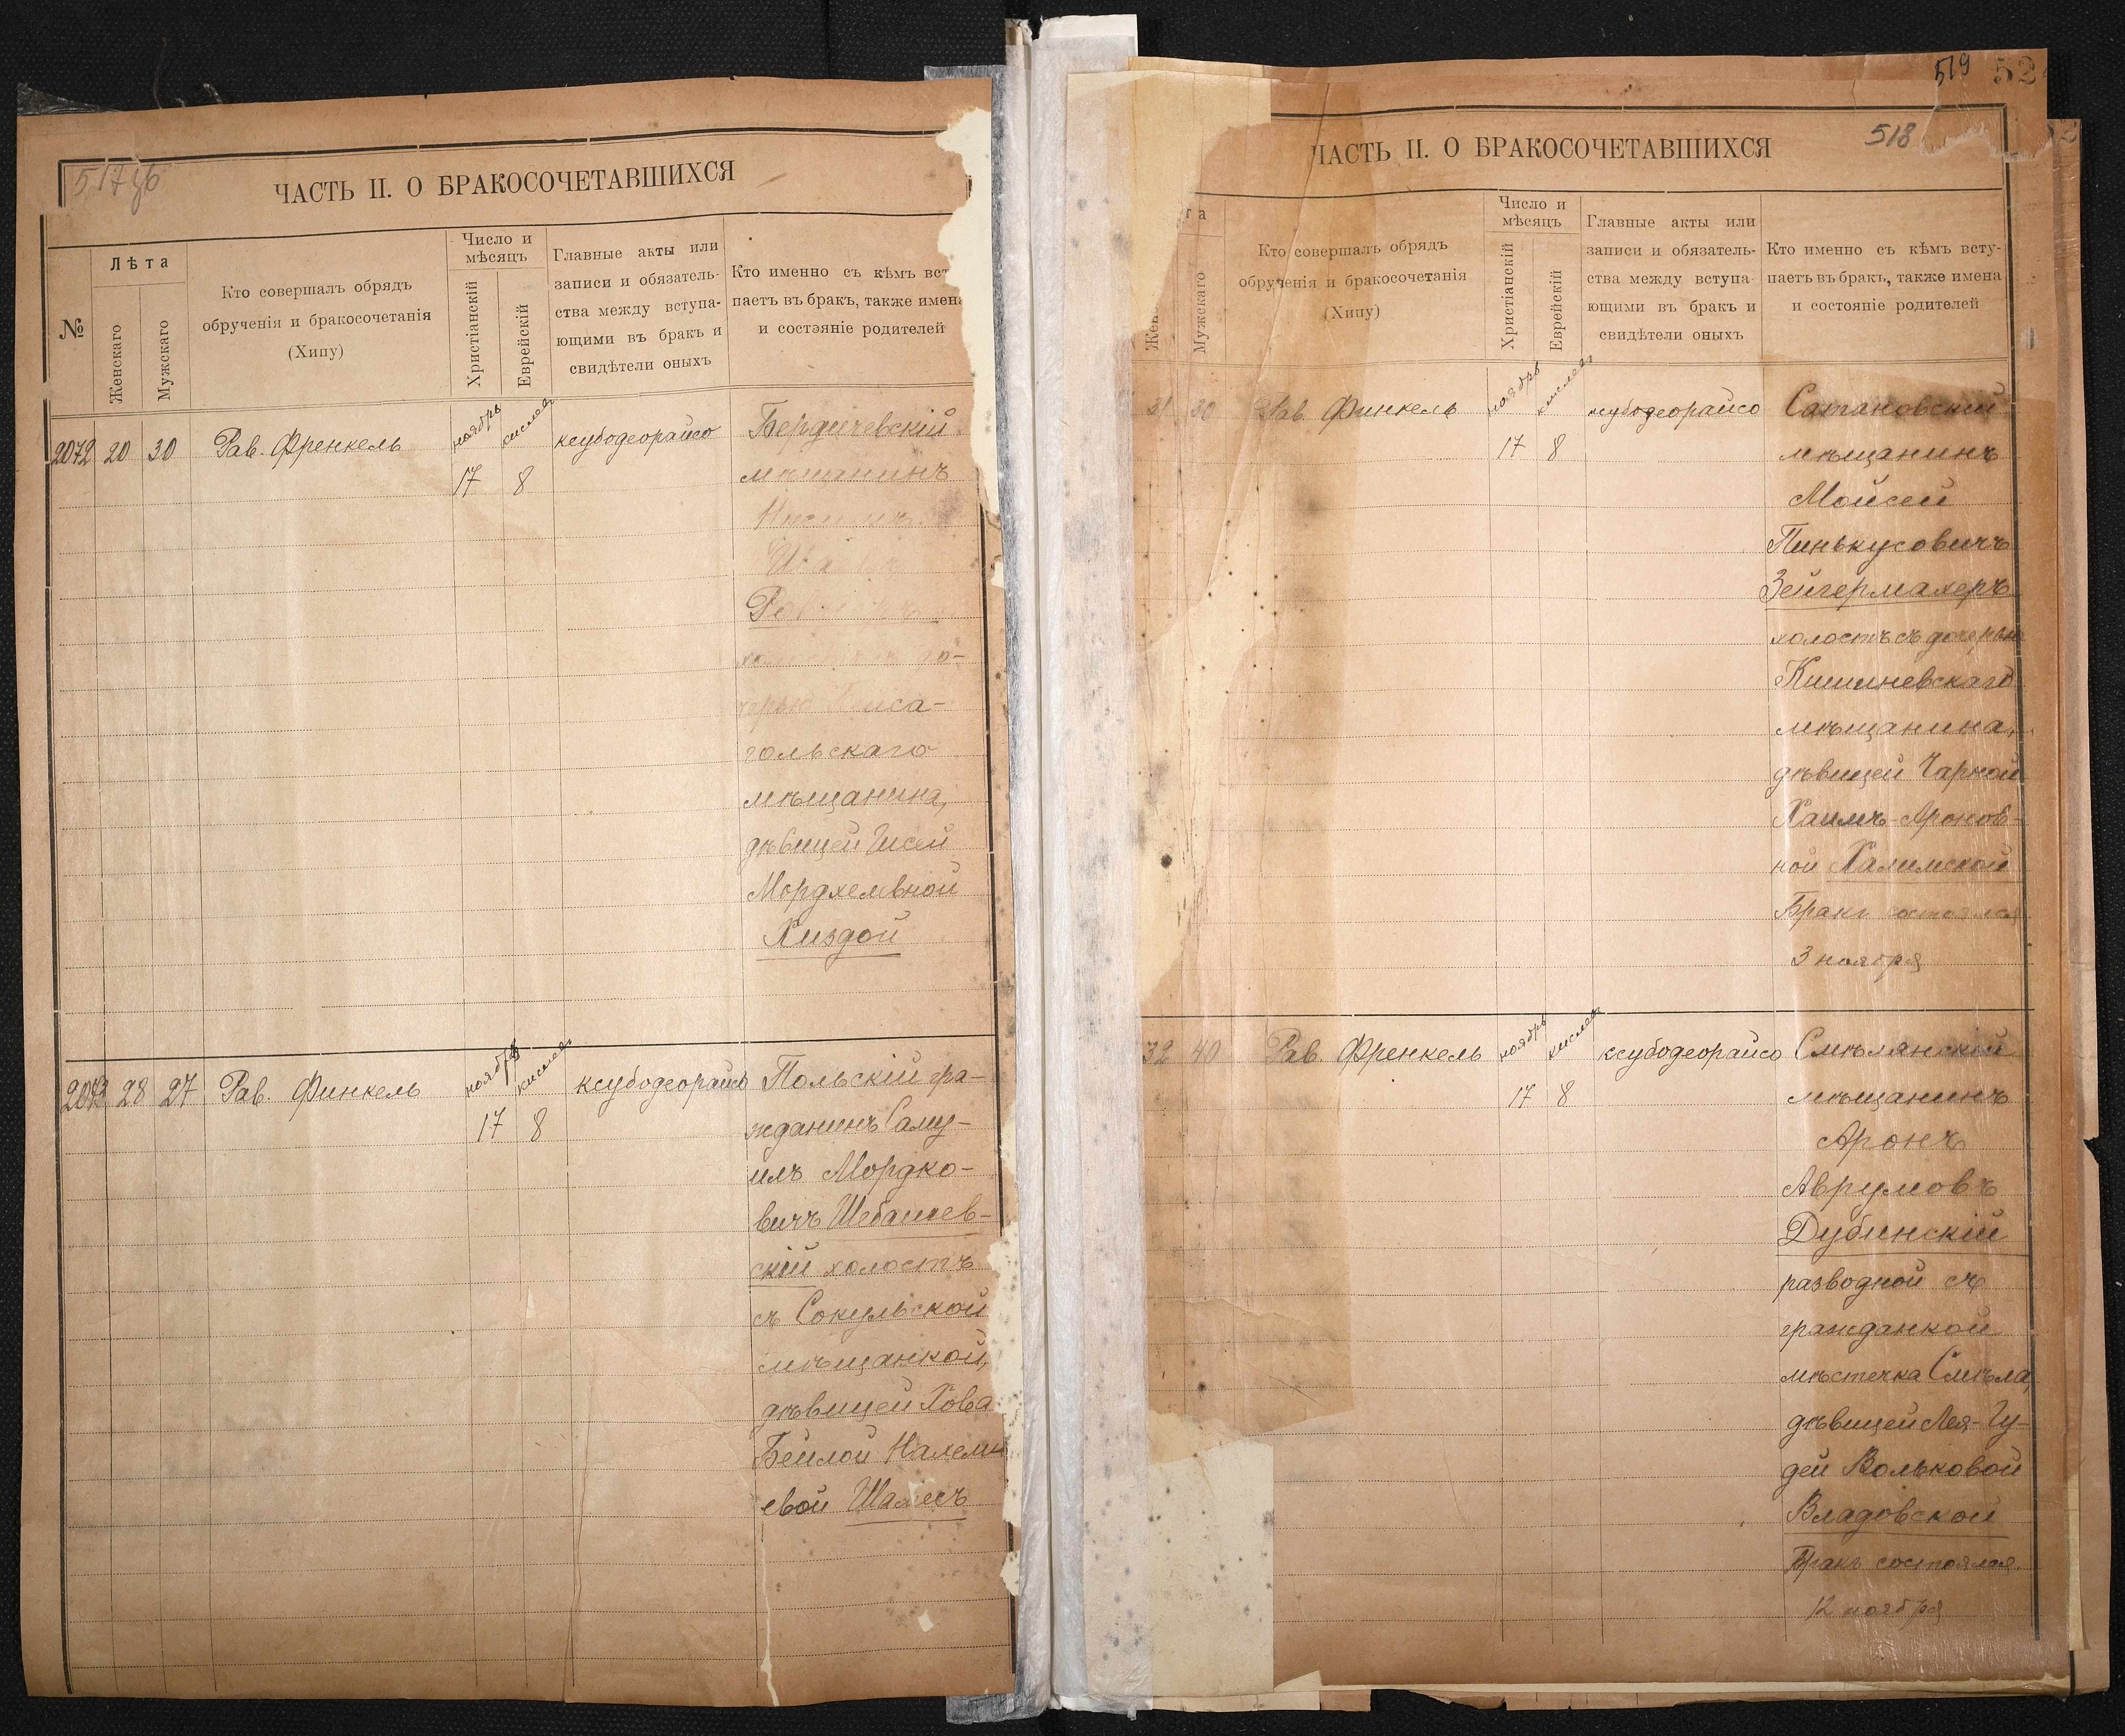 517об
ЧАСТЬ II. О БРАКОСОЧЕТАВШИХСЯ
№
Лѣта
Женскаго
Мужскаго
Кто совершалъ обрядъ
обрученія и бракосочетанія
(Хипу)
Число и
мѣсяцъ
Христіанскій
Еврейскій
Главные акты или
записи и обязатель-
ства между вступа-
ющими въ бракъ и
свидѣтели оныхъ
Кто именно съ кѣмъ вст
паетъ въ бракъ, также имена
и состэяніе родителей
2072 20 30 Рав. Френкель ноябрь кислев ксубодеорайсо Бердичевскій
17 8 мѣщанинъ
до-
черью
гольскаго
мѣщанина,
дѣвицей Гисей
Мордхелевной
Хиздой
2073 28 27 Рав. Финкель ноябрь кислев ксубодеорайсо Польскій гра-
17 8 жданинъ Саму-
илъ Мордко-
вичъ Шебашев-
скій холостъ
съ Сокульской
мѣщанкой,
дѣвицей Хова
Бейлой Нахеми
евой Шамесъ
519
518
ЧАСТЬ II. О БРАКОСОЧЕТАВШИХСЯ
та
Жен
Мужскаго
Кто совершалъ обрядъ
обрученія и бракосочетанія
(Хипу)
Число и
мѣсяцъ
Христіанскій
Еврейскій
Главные акты или
записи и обязатель-
ства между вступа-
ющими въ бракъ и
свидѣтели оныхъ
Кто именно съ кѣмъ всту-
паетъ въ бракъ, также имена
и состояніе родителей
21 30 Рав. Финкель ноябрь кислев ксубодеорайсо Сатановскій
17 8 мѣщанинъ
Мойсей
Пинькусовичъ
Зейгермахеръ
холостъ съ дочерью
Кишиневскаго
мѣщанина,
дѣвицей Чарной
Хаимъ-Аронов-
ной Халимской
Бракъ состоялся
3 ноября
32 40 Рав. Френкель ноябрь кислев ксубодеорайсо Смѣлянскій
17 8 мѣщанинъ
Аронъ
Аврумовъ
Дубинскій
разводной съ
гражданкой
мѣстечка Смѣла,
дѣвицей Лея-Гу-
дей Вольковой
Владовской
Бракъ состоялся
12 ноября